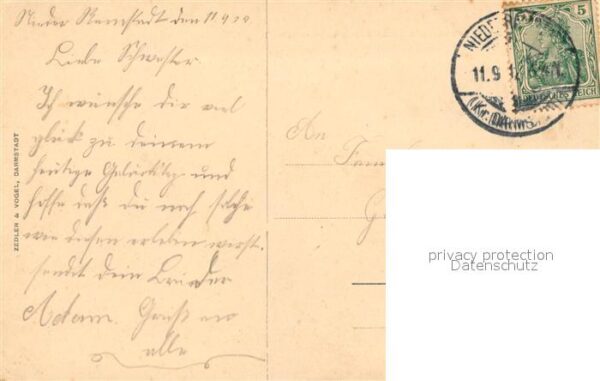 Nieder Ramstadt den 11.9.
Liebe Schwester
Ich wünsche dir viel
glück zu deinem
heutigen Geburtstag und
hoffe daß du noch
wie diesen erleben wirst.
sendet dein Bruder
Adam. Gruß an
alle
ZEDLER & VOGEL, DARMSTADT
An
NIEDER
11.9.
5
DEUTSCHES REICH
privacy protection
Datenschutz